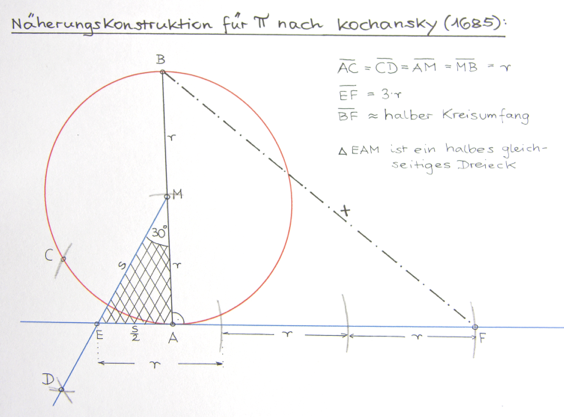 Näherungskonstruktion für π nach Kochansky (1685):
AC = CD = AM = MB = r
EF = 3·r
BF ≈ halber Kreisumfang
△ EAM ist ein halbes gleich-
seitiges Dreieck
B
r
M
30°
C
s
r
x
E
s/2
A
r
r
F
r
D